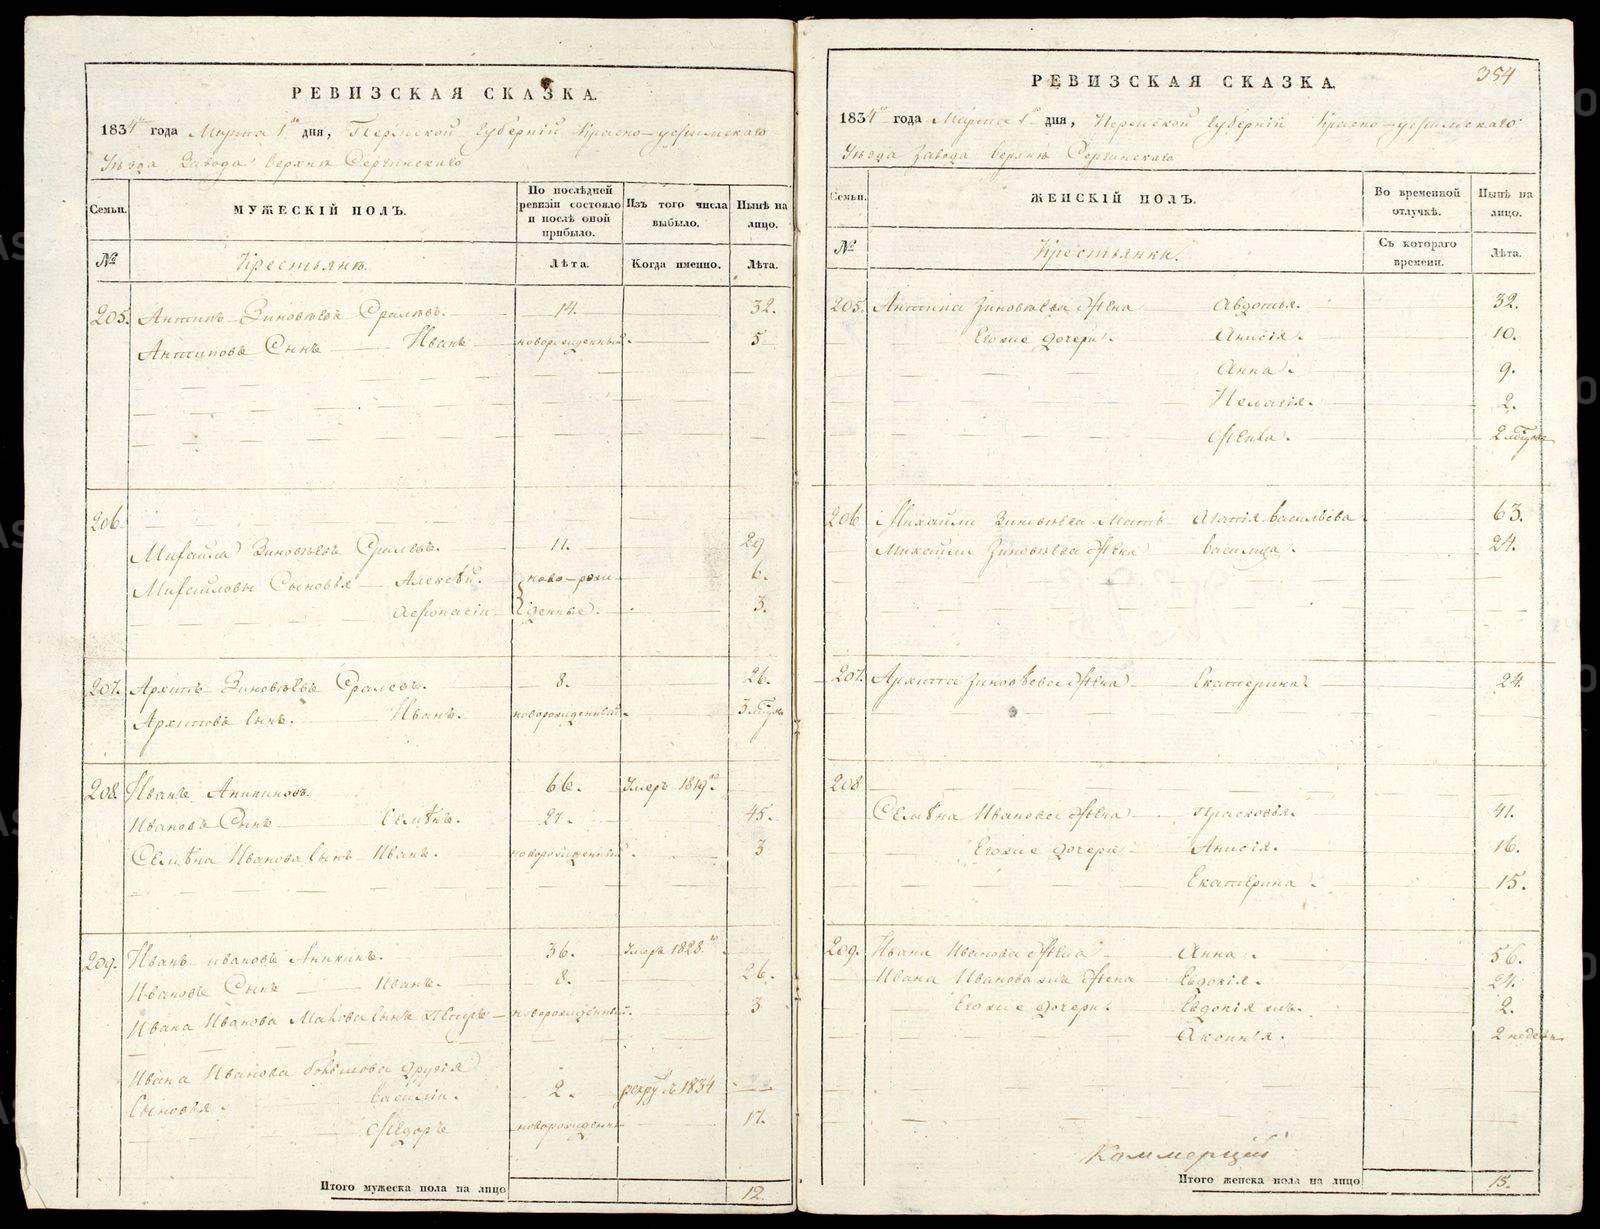 РЕВИЗСКАЯ СКАЗКА.
1834го года Марта 1го дня, Пермской Губернiи Красно-уфимскаго
Уѣзда Завода Верхне Сергинскаго
Семьи.
МУЖЕСКIЙ ПОЛЪ.
По послѣдней ревизiи состояло и послѣ оной прибыло.
Изъ того числа выбыло.
Нынѣ на лицо.
№
Крестьяне.
Лѣта.
Когда именно.
Лѣта.
205. Антипъ Зиновьевъ 14. 32.
Антиповъ Сынъ Иванъ новорожденный. 5
206
Михайла Зиновьевъ 11. 29
Михайловы Сыновья Алексѣй. ново-рож 6.
Афонасiй денные. 3.
207. Архипъ Зиновьевъ 8. 26.
Архиповъ Сынъ. Иванъ. новорожденный. 3
208. Иванъ Аникинъ. 66. Умеръ 1819го
Ивановъ Сынъ Семѣнъ. 27. 45.
Семѣна Иванова Сынъ Иванъ. новорожденный. 3
209. Иванъ Ивановъ Аникинъ. 36. Умеръ 1828го
Ивановъ Сынъ Иванъ. 8. 26.
Ивана Иванова Сынъ Петръ новорожденный. 3
Ивана Иванова другiя
Сыновья. Василiй. 2. 1834
Федоръ новорожденный 17.
Итого мужеска пола на лицо 12.
354
РЕВИЗСКАЯ СКАЗКА.
1834го года Марта 1го дня, Пермской Губернiи Красно-уфимскаго
Уѣзда Завода Верхне Сергинскаго
Семьи.
ЖЕНСКIЙ ПОЛЪ.
Во временной отлучкѣ.
Нынѣ на лицо.
№
Крестьянки.
Съ котораго времени.
Лѣта.
205. Антипа Зиновьева Жена Авдотья. 32.
Егожие дочери. Анисiя. 10.
Анна. 9.
Пелагiя. 2.
Фекла. 2
206 Михайли Зиновьева Мать Агатiя Васильева 63.
Михайли Зиновьева Жена Василиса. 24.
207. Архипа Зиновьева Жена Екатерина. 24.
208
Семѣна Иванова Жена Прасковья. 41.
Егожие дочери Анисiя. 16.
Екатерина. 15.
209. Ивана Иванова Жена Анна. 56.
Ивана Иванова жъ Жена Евдокiя. 24.
Егожие дочери. Евдокiя жъ. 2.
Аксинья. 2 недели
Итого женска пола на лицо 15.